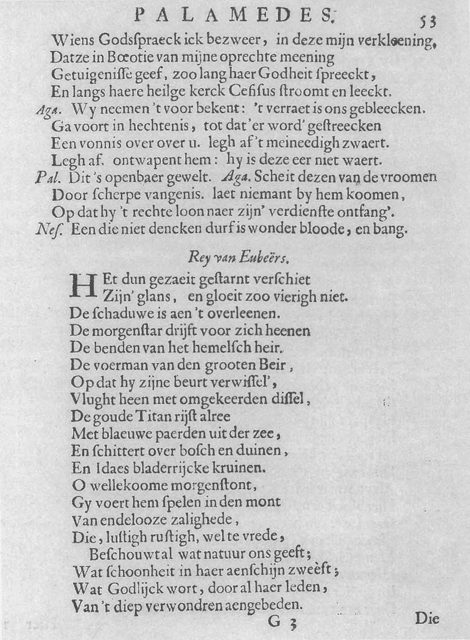 PALAMEDES. 53
Wiens Godsspraeck ick bezweer, in deze mijn verkleening,
Datze in Bœotie van mijne oprechte meening
Getuigenisse geef, zoo lang haer Godheit spreeckt,
En langs haere heilge kerck Cefisus stroomt en leeckt.
Aga. Wy neemen 't voor bekent: 't verraet is ons gebleecken.
Ga voort in hechtenis, tot dat'er word' gestreecken
Een vonnis over over u. legh af't meineedigh zwaert.
Legh af. ontwapent hem: hy is deze eer niet waert.
Pal. Dit's openbaer gewelt. Aga. Scheit dezen van de vroomen
Door scherpe vangenis. laet niemant by hem koomen,
Op dat hy 't rechte loon naer zijn' verdienste ontfang'.
Nes. Een die niet dencken durf is wonder bloode, en bang.
Rey van Eubeërs.
HEt dun gezaeit gestarnt verschiet
Zijn' glans, en gloeit zoo vierigh niet.
De schaduwe is aen 't overleenen.
De morgenstar drijft voor zich heenen
De benden van het hemelsch heir.
De voerman van den grooten Beir,
Op dat hy zijne beurt verwissel',
Vlught heen met omgekeerden dissel,
De goude Titan rijst alree
Met blaeuwe paerden uit der zee,
En schittert over bosch en duinen,
En Idaes bladerrijcke kruinen.
O wellekoome morgenstont,
Gy voert hem spelen in den mont
Van endelooze zalighede,
Die, lustigh rustigh, wel te vrede,
Beschouwt al wat natuur ons geeft;
Wat schoonheit in haer aenschijn zweeft;
Wat Godlijck wort, door al haer leden,
Van 't diep verwondren aengebeden.
G 3 Die